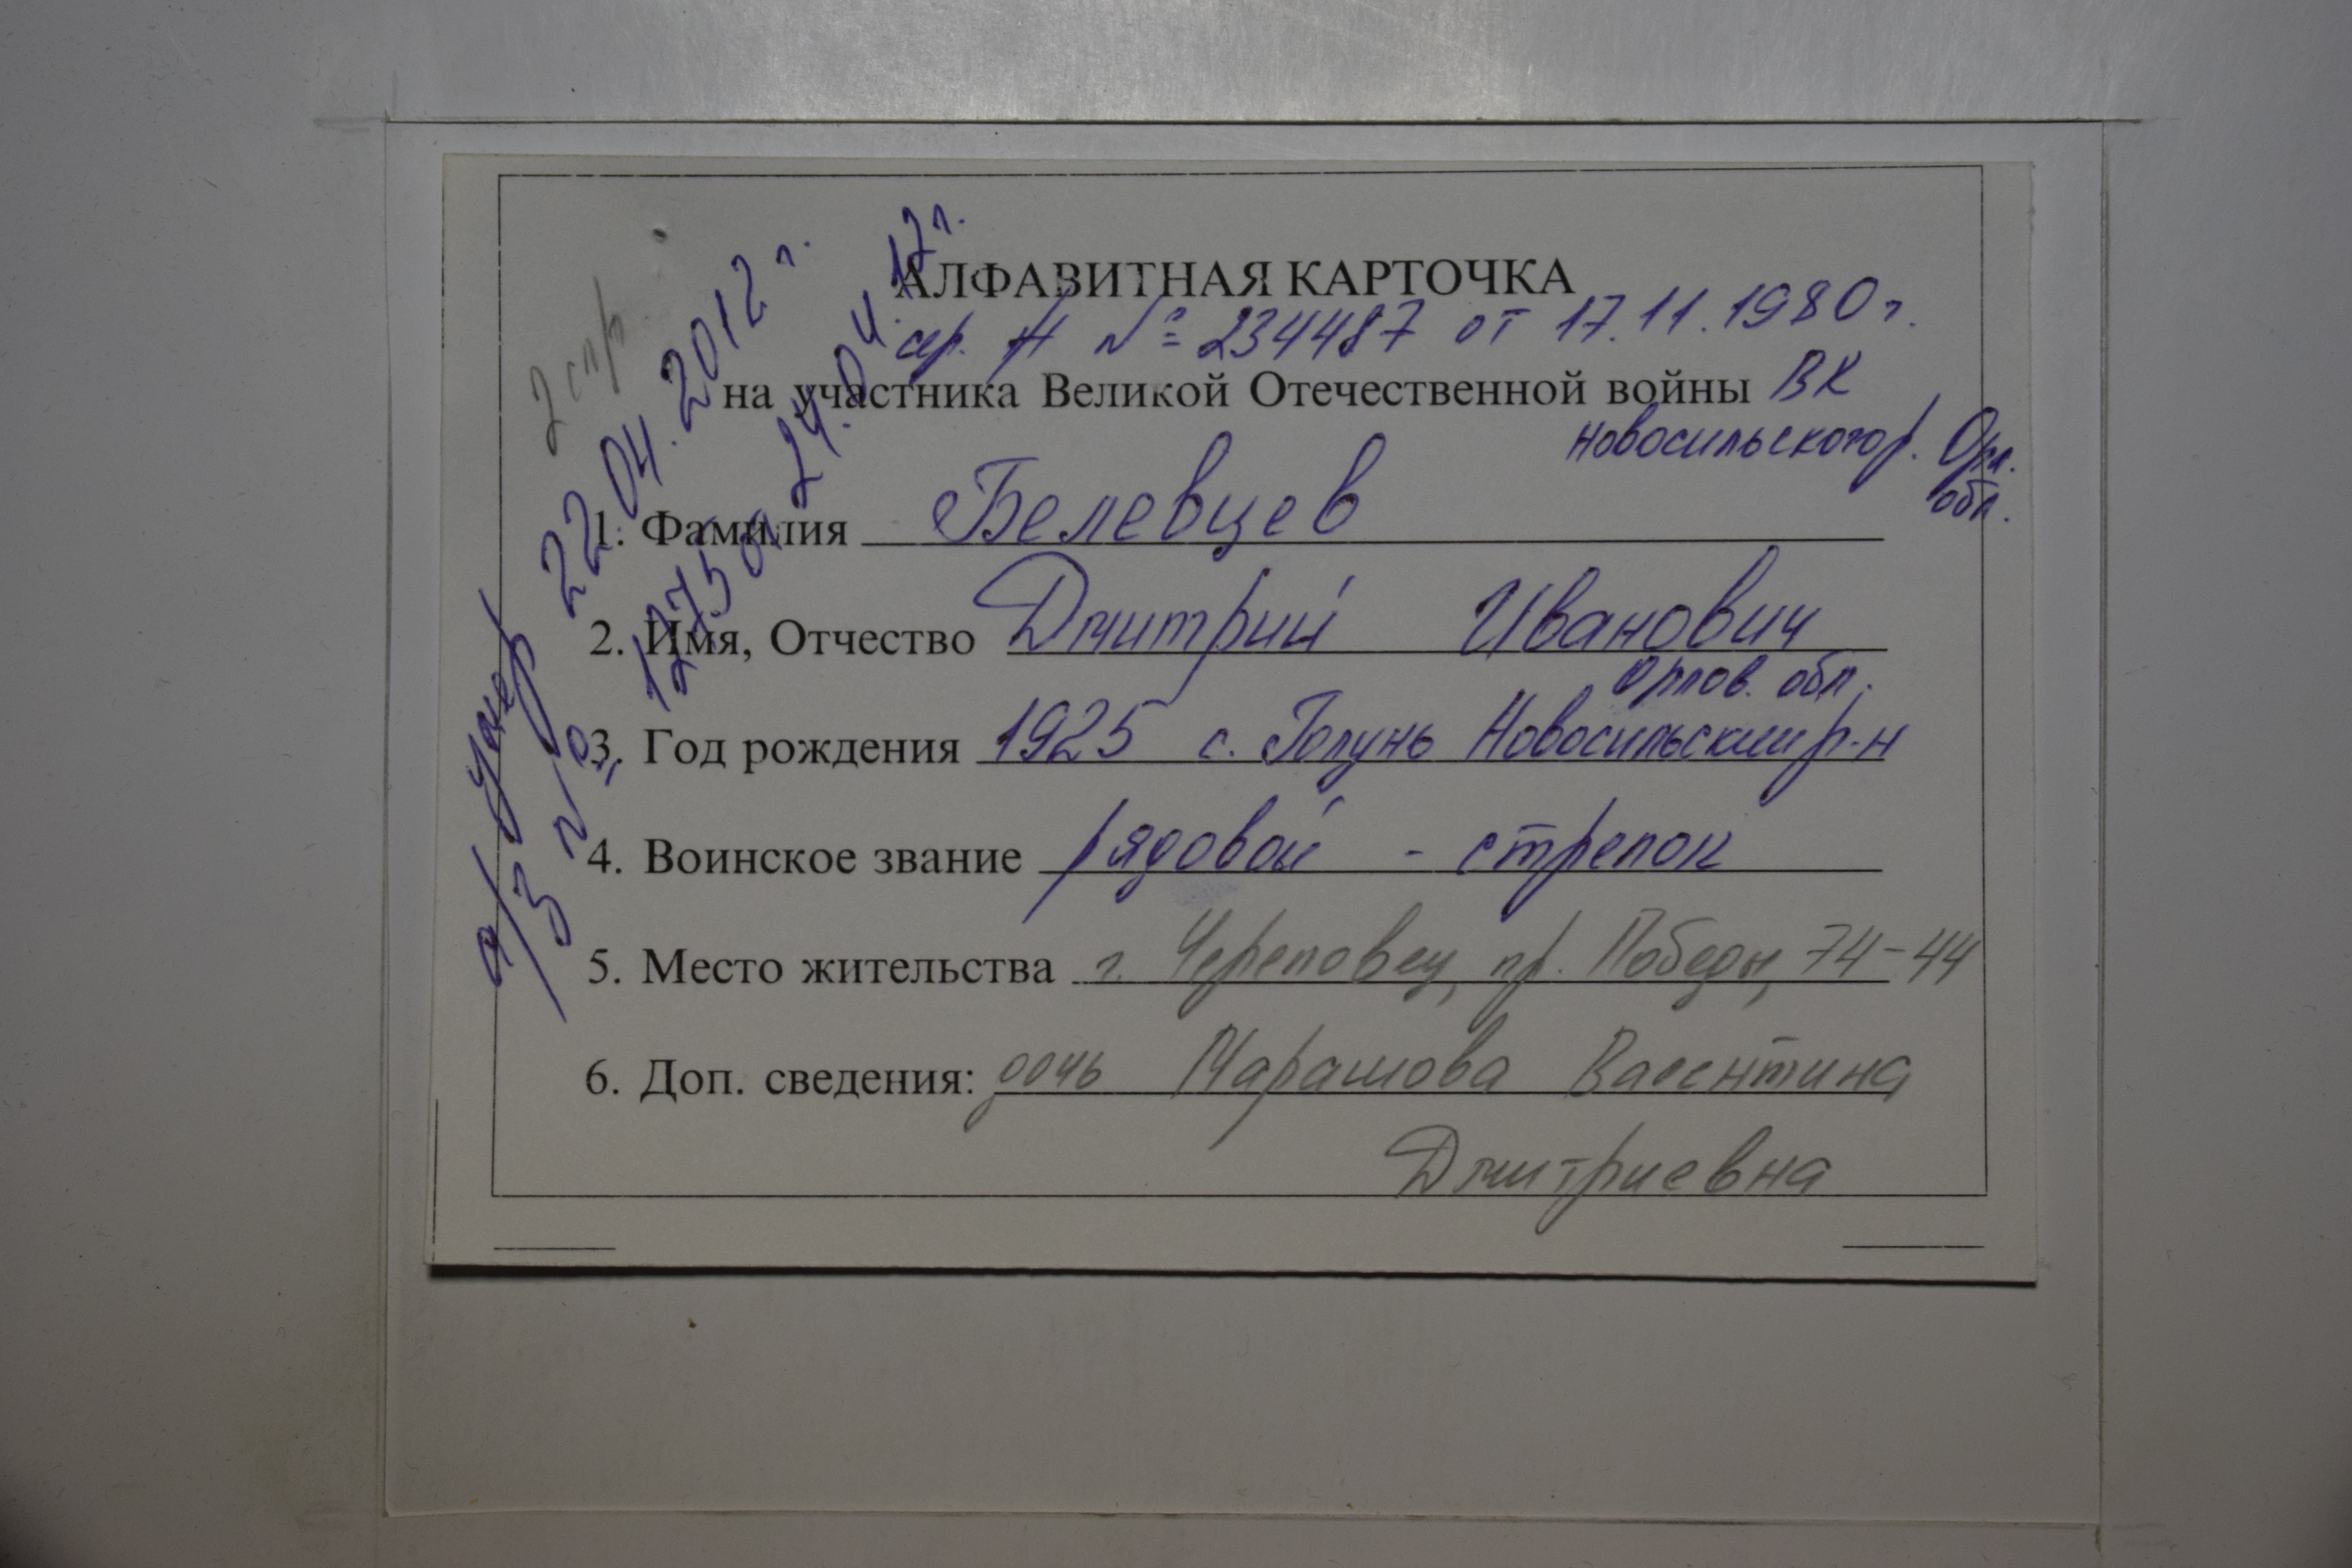 АЛФАВИТНАЯ КАРТОЧКА
сер. Н № 234487 от 17.11.1980 г.
на участника Великой Отечественной войны ВК
Новосильского р. Орл.
обл.
1. Фамилия Белевцев
2. Имя, Отчество Дмитрий Иванович
Орлов. обл.
3. Год рождения 1925 с. Голунь Новосильский р-н
4. Воинское звание рядовой - стрелок
5. Место жительства г. Череповец, пр. Победы, 74-44
6. Доп. сведения: дочь Марашова Валентина
Дмитриевна
2 спр
умер 22.04.2012 г.
а/з № 1275 от 24.04.12 г.